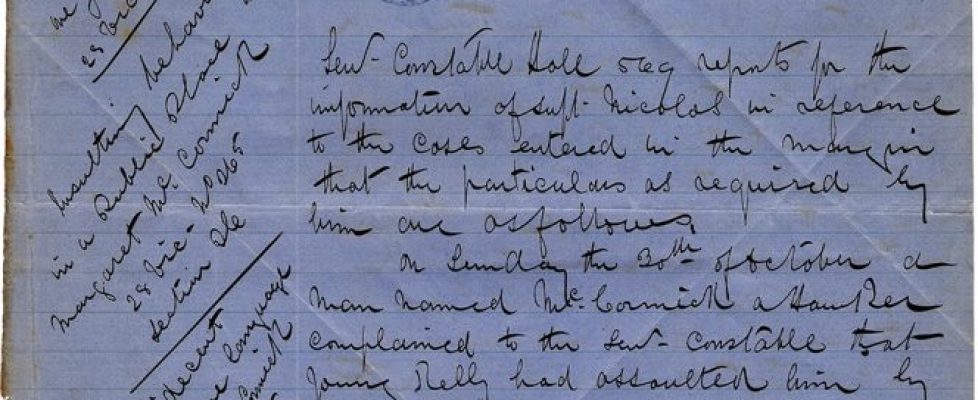 28 Vic
Insulting behav
in a Public Place
Margaret McCormick
28 Vic- No 265
Section
decent
language
Cormick
Senr- Constable Hall reports for the
information of Supt- Nicolas in reference
to the Cases entered in the margin
that the particulars as required by
him are as follows,
On Sunday the 30th of October a
man named McCormick a Hawker
complained to the Senr- Constable that
young Kelly had assaulted him by